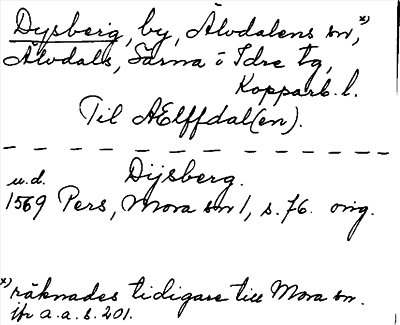 Dysberg, by, Älvdalens sn,ˣ⁾
Älvdals, Särna i Idre tg,
Kopparb. l.
Till AElffdal(en).
u.d. Dijsberg.
1569 Pers, Mora sn 1, s. 76. orig.
ˣ⁾ räknades tidigare till Mora sn.
jfr a.a. s. 201.